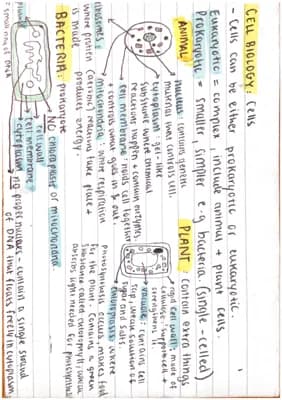 CELL BIOLOGY: Cells
- Cells can be either prokaryotic or eukaryotic.
Eukaryotic = complex, include animal + plant cells.
Prokaryotic = smaller, simpler e.g bacteria (single-celled)
ANIMAL
nucleus: contains genetic
material that controls cell.
cytoplasm: gel-like
substance where chemical
reactions happen + contain enzymes.
cell membrane: holds cell together
+ controls what goes in & out.
mitochondria: where respiration
reactions take place +
produces energy.
ribosomes:
where protein
is made
PLANT: contain extra things
rigid cell wall: made of
cellulose. supports cell +
strengthens it.
vacuole: contains cell
sap, weak solution of
sugar and salts
chloroplasts: where
photosynthesis occurs, makes food
for the plant. Contains a green
substance called chlorophyll, which
absorbs light needed for photosynthesis
BACTERIA: prokaryote
NO chloroplasts or mitochondria
cell wall
cell membrane
cytoplasm
no proper nucleus - contain a single strand
of DNA that floats freely in cytoplasm
plasmid
= small ring of DNA